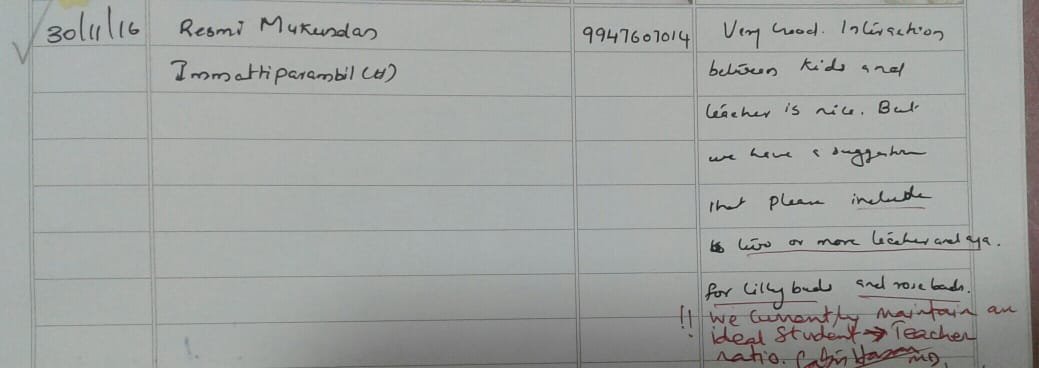 30/11/16 Resmi Mukundan 9947607014 Very Good. Interaction
Immattiparambil (H) between kids and
teacher is nice. But
we have a suggestion
that please include
two or more teacher and aya.
for Lilly buds and rose buds.
!! We currently maintain an
ideal Student → Teacher
ratio.
MD.